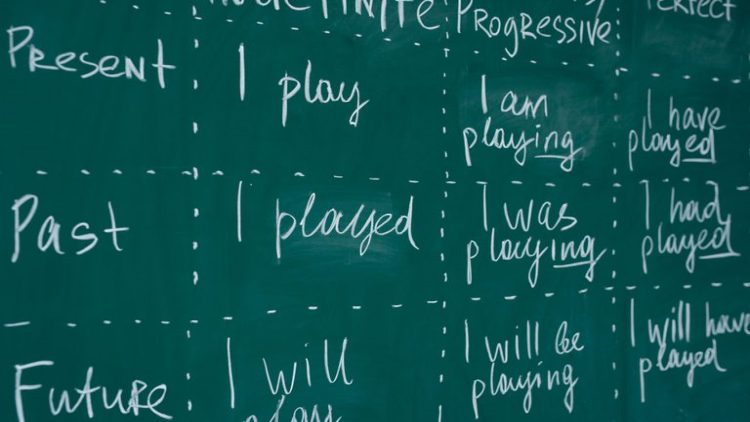 INDEFINITE
PROGRESSIVE
PERFECT
PRESENT
I play
I am
playing
I have
played
Past
I played
I was
playing
I had
played
Future
I will
play
I will be
playing
I will have
played